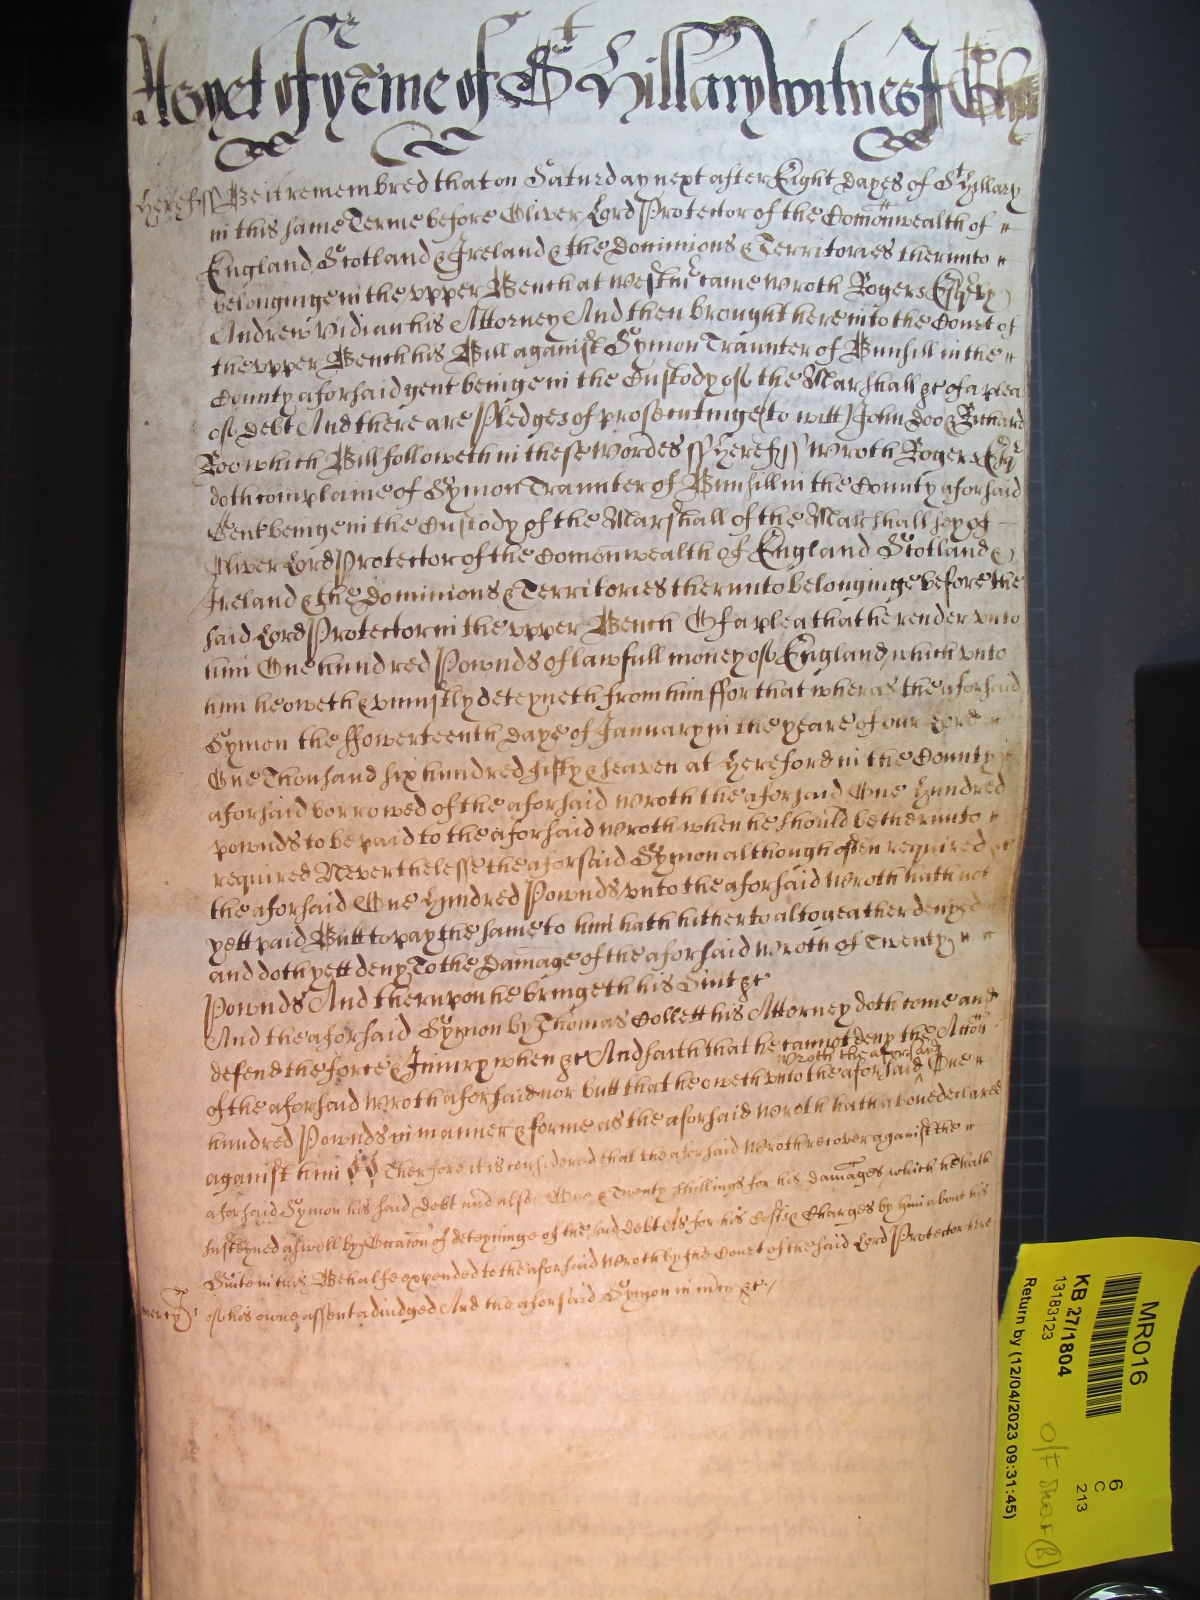 As yet of ye Tme of St Hillary witnes J
Heref ss Be it remembred that on Saturday next after Eight dayes of St Hillary
in this same Terme before Oliver Lord Protector of the Comonwealth of
England Scotland & Ireland & the Dominions & Territories therunto
belonginge in the upper Bench at Westmr came Wroth Rogers Esqr by
Andrew Vidian his Attorney And then brought here into the Court of
the upper Bench his Bill against Symon Traunter of Bunhill in the
County aforsaid gent beinge in the Custody of the Marshall &c of a plea
of debt And there are Pledges of prosecutinge (to witt) John Doo & Richard
Roo which Bill followeth in these wordes ss Heref ss Wroth Rogers Esqr
doth complaine of Symon Traunter of Bunhill in the County aforsaid
Gent beinge in the Custody of the Marshall of the Marshallsey of
Oliver Lord Protector of the Comonwealth of England Scotland &
Ireland & the Dominions & Territories therunto belonginge before the
said Lord Protector in the upper Bench Of a plea that he render unto
him One hundred Pownds of lawfull money of England which unto
him he oweth & uniustly deteyneth from him ffor that wheras the aforsaid
Symon the ffowerteenth daye of January in the yeare of our Lord
One Thousand six hundred fifty & seaven at Hereford in the County
aforsaid borrowed of the aforsaid Wroth the aforsaid One Hundred
pownds to be paid to the aforsaid Wroth when he should be therunto
required Neverthelesse the aforsaid Symon although often required
the aforsaid One Hundred Pownds unto the aforsaid Wroth hath not
yett paid Butt to pay the same to him hath hitherto altogeather denyed
and doth yett deny To the Damage of the aforsaid Wroth of Twenty
Pownds And therupon he bringeth his Suit &c
And the aforsaid Symon by Thomas Collett his Attorney doth come and
defend the force & Iniury when &c And saith that he cannot deny the Accon
of the aforsaid Wroth aforsaid nor butt that he oweth unto the aforsaid Wroth the aforsaid One
hundred Pownds in manner & forme as the aforsaid Wroth hath above declared
against him Therfore it is considered that the aforsaid Wroth recover against the
aforsaid Symon his said Debt and also One & Twenty shillings for his damages which he hath
susteyned aswell by Occacon of deteyninge of the said debt As for his Costs & Charges by him about his
Suite in this Behalfe expended to the aforsaid Wroth by the Court of the said Lord Protector here
mercy of his owne assent adiudged And the aforsaid Symon in mcy &c
MR016
KB 27/1804
13183123
Return by (12/04/2023 09:31:45)
6
C
213